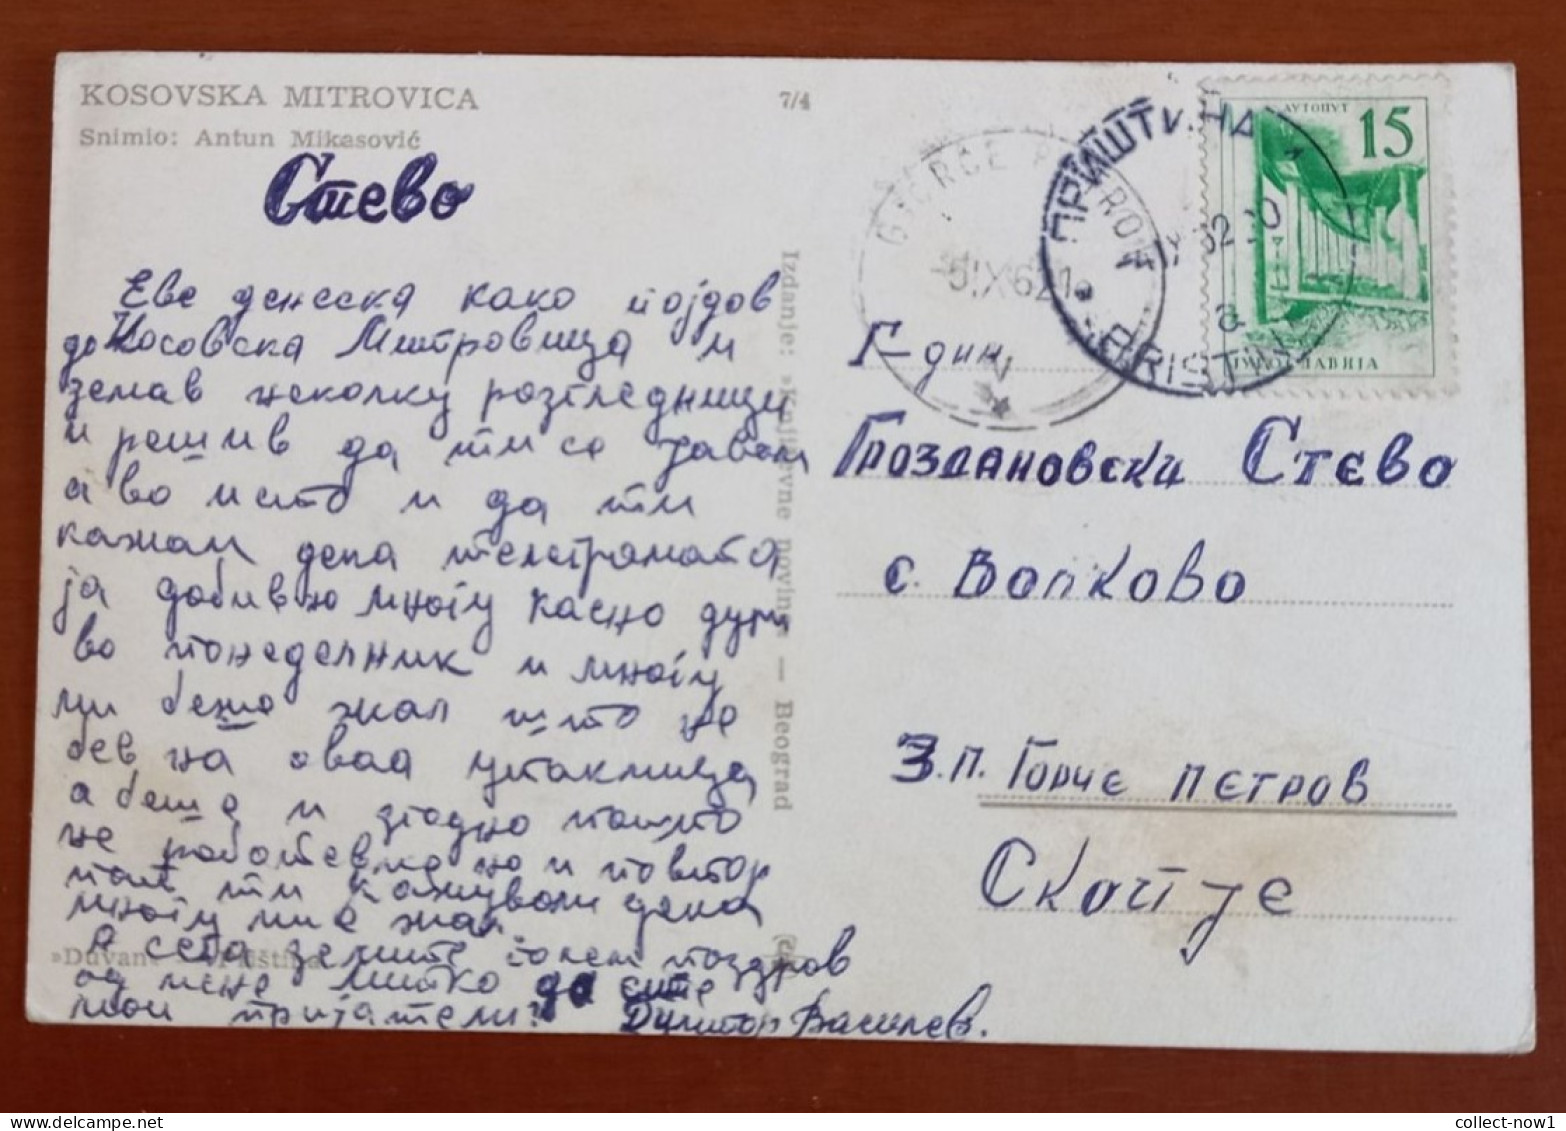 KOSOVSKA MITROVICA
Snimio: Antun Mikasović
7/4
Стево
Еве денеска како појдов
до Косовска Митровица и
земав неколку розгледници
и решив да ти се јавам
а во исто и да ти
кажам дека телеграмата
ја добивно многу касно дури
во понеделник и многу
ми беше жал што не
бев на оваа утакмица
а беше и згодно пошто
не работевме но и повтор
пак ти кажувам дека
многу ми е жал
А сега земите голем поздров
од мене Митко до сите
мои пријатели! Димитар Василев.
Izdanje: »Književne novine« — Beograd
»Duvan«
ПРИШТИНА
PRIŠTINA
62
GJORČE PETROV
5IX62
АУТОПУТ 15
ЈУГОСЛАВИЈА
Г-дин
Гроздановски Стево
с. Волково
З.п. Горче Петров
Скопје
collect-now1